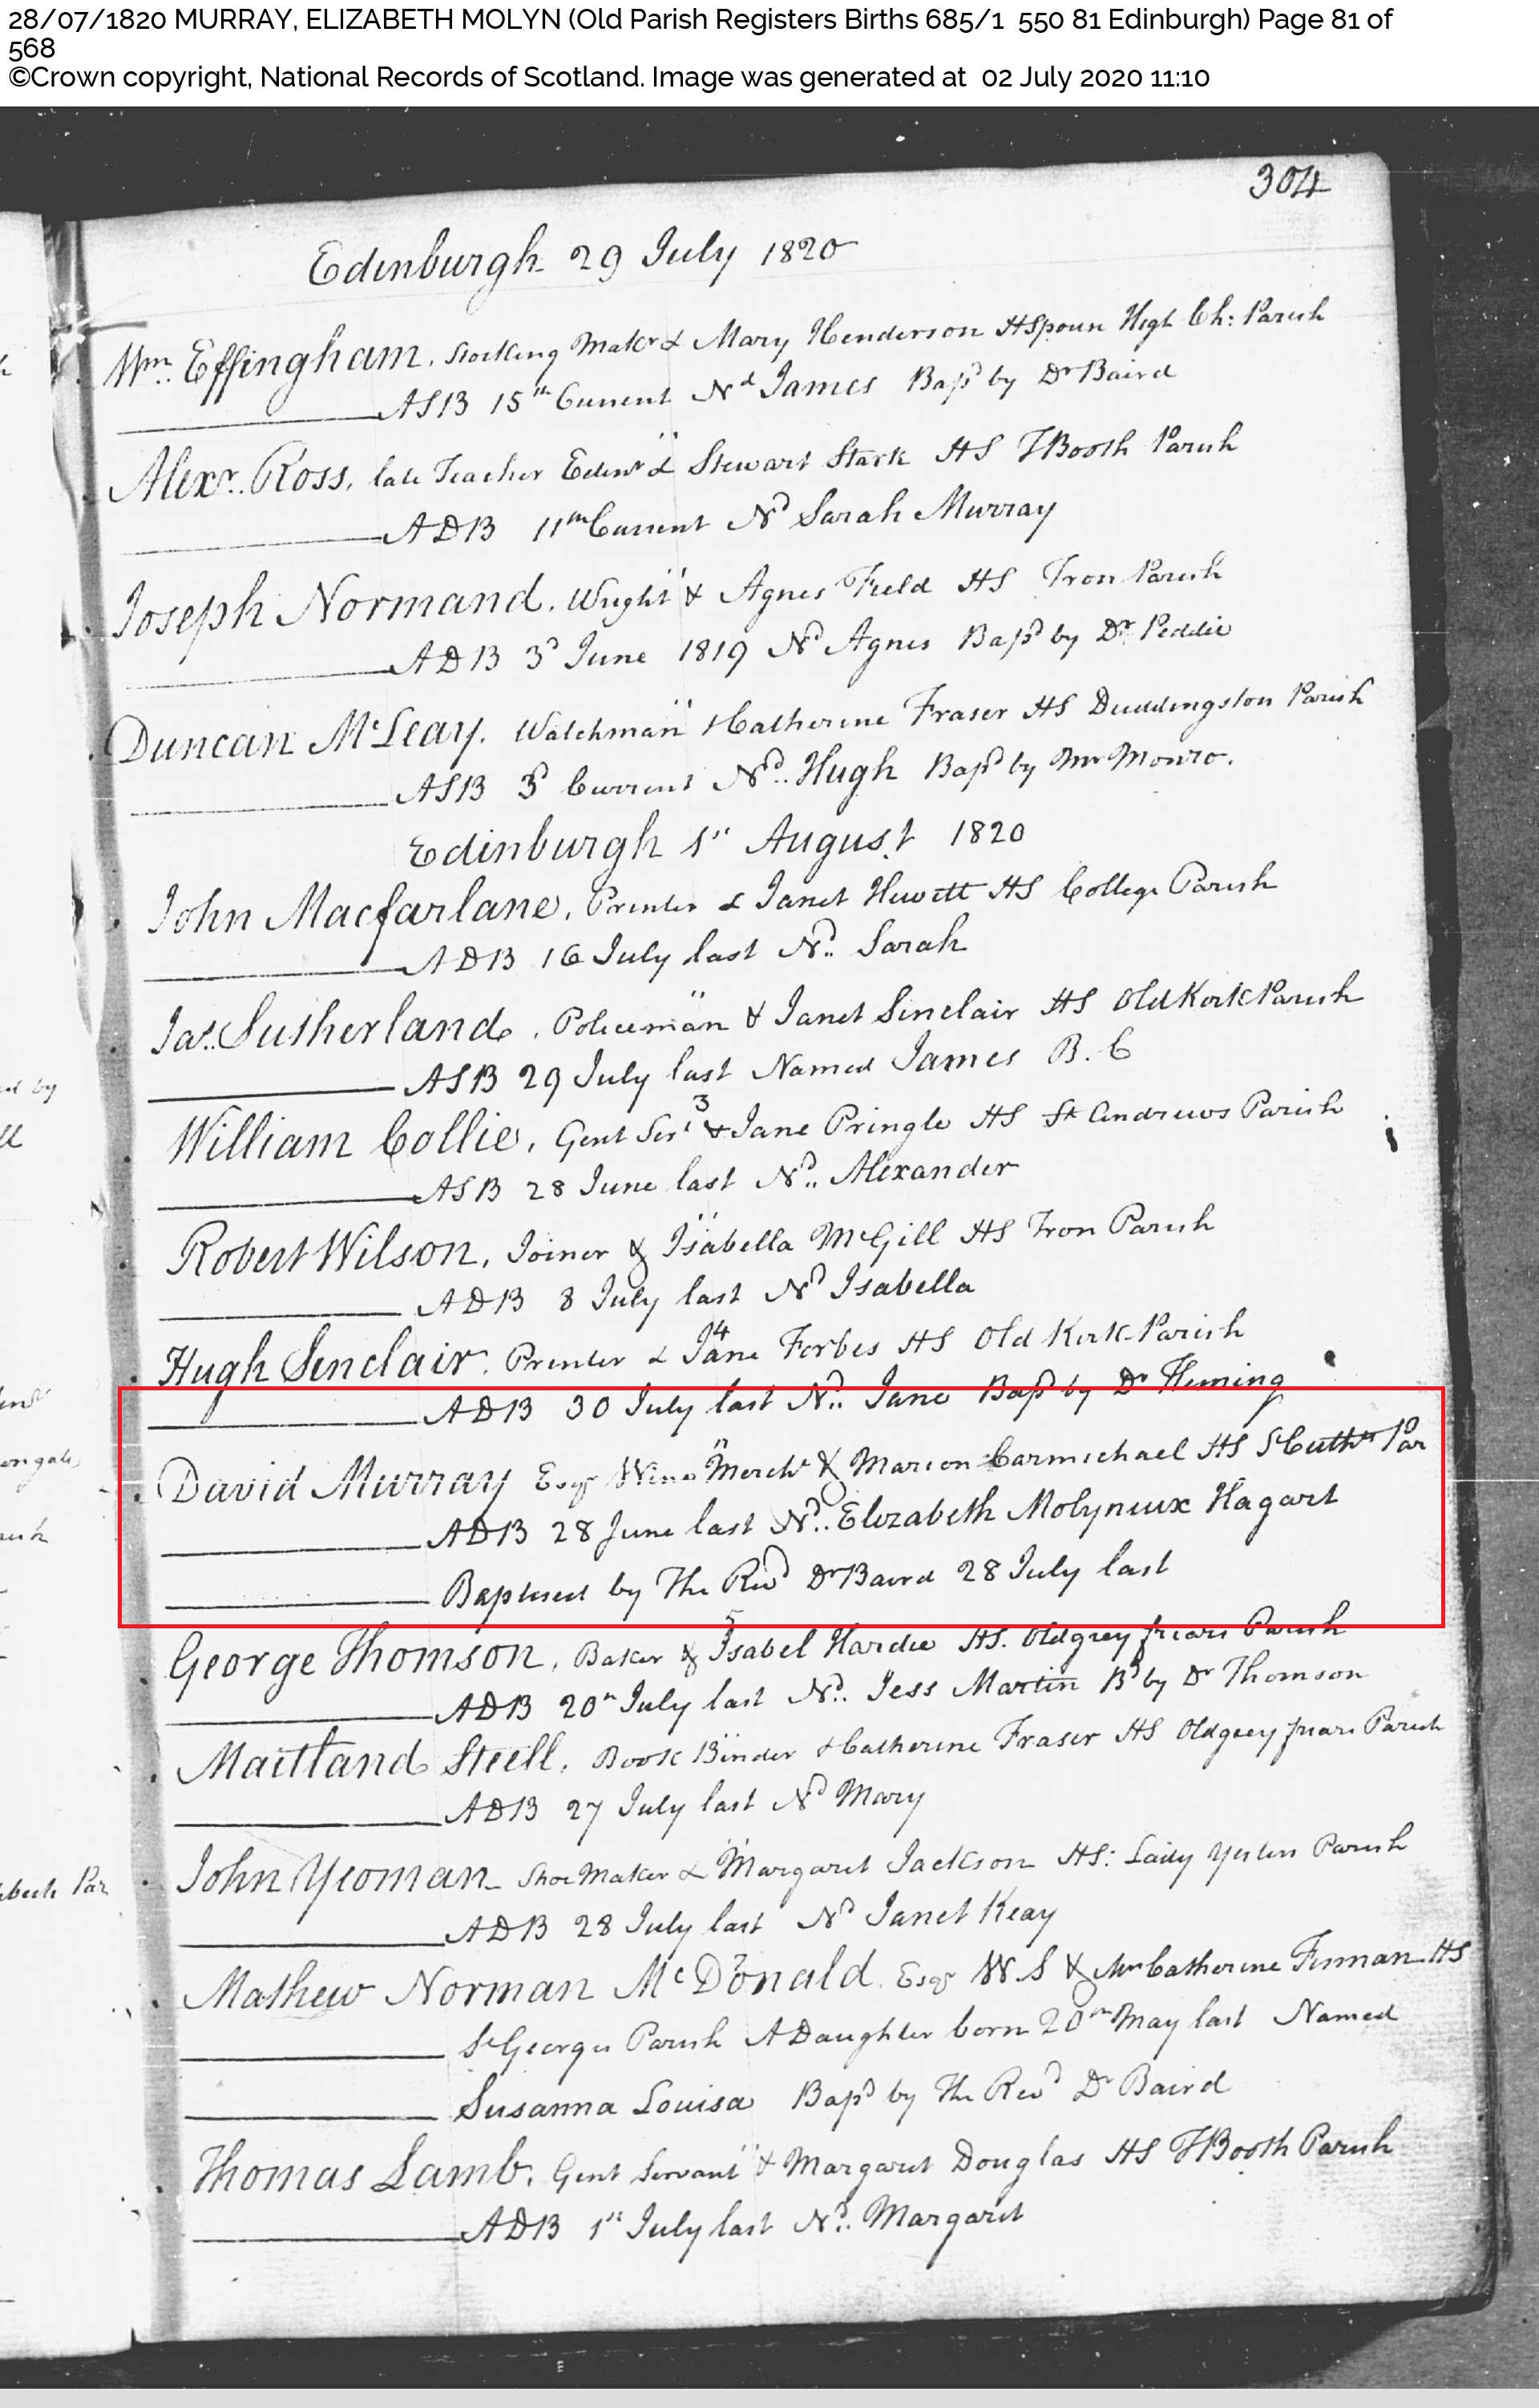 28/07/1820 MURRAY, ELIZABETH MOLYN (Old Parish Registers Births 685/1 550 81 Edinburgh) Page 81 of
568
©Crown copyright, National Records of Scotland. Image was generated at 02 July 2020 11:10
304
Edinburgh 29 July 1820
Wm. Effingham, Stocking Maker & Mary Henderson HSpouse High Ch: Parish
ASB 15th Current Nd James Bapd by Dr Baird
Alexr. Ross, late Teacher Edinr & Stewart Stark HS TBooth Parish
ADB 11th Current Nd Sarah Murray
Joseph Normand, Wright & Agnes Field HS Tron Parish
ADB 3d June 1819 Nd Agnes Bapd by Dr Peddie
Duncan McLeay, Watchman & Catherine Fraser HS Duddingston Parish
ASB 3d Current Nd. Hugh Bapd by Mr Monro.
Edinburgh 1st August 1820
John Macfarlane, Printer & Janet Hewitt HS College Parish
ADB 16 July last Nd. Sarah
Jas. Sutherland, Policeman & Janet Sinclair HS Old Kirk Parish
ASB 29 July last Named James B. C
3
William Collie, Gent Sert & Jane Pringle HS St Andrews Parish
ASB 28 June last Nd. Alexander
Robert Wilson, Joiner & Isabella McGill HS Tron Parish
ADB 8 July last Nd Isabella
4
Hugh Sinclair, Printer & Jane Forbes HS Old Kirk Parish
ADB 30 July last Nd. Jane Bapd by Dr Fleming
David Murray Esqr Wine Mercht & Marion Carmichael HS St Cuthts Par
ADB 28 June last Nd. Elizabeth Molyneux Hagart
Baptised by The Revd Dr Baird 28 July last
5
George Thomson, Baker & Isabel Hardie HS. Oldgrey friars Parish
ADB 20th July last Nd. Jess Martin Bd by Dr Thomson
Maitland Steell, Book Binder & Catherine Fraser HS Oldgrey friars Parish
ADB 27 July last Nd Mary
John Yeoman Shoe Maker & Margaret Jackson HS: Lady Yesters Parish
ADB 28 July last Nd Janet Keay
Mathew Norman McDonald Esqr W S & Mrs Catherine HS
St Georges Parish A Daughter born 20th May last Named
Susanna Louisa Bapd by The Revd Dr Baird
Thomas Lamb, Gent Servant & Margaret Douglas HS TBooth Parish
ADB 1st July last Nd. Margaret